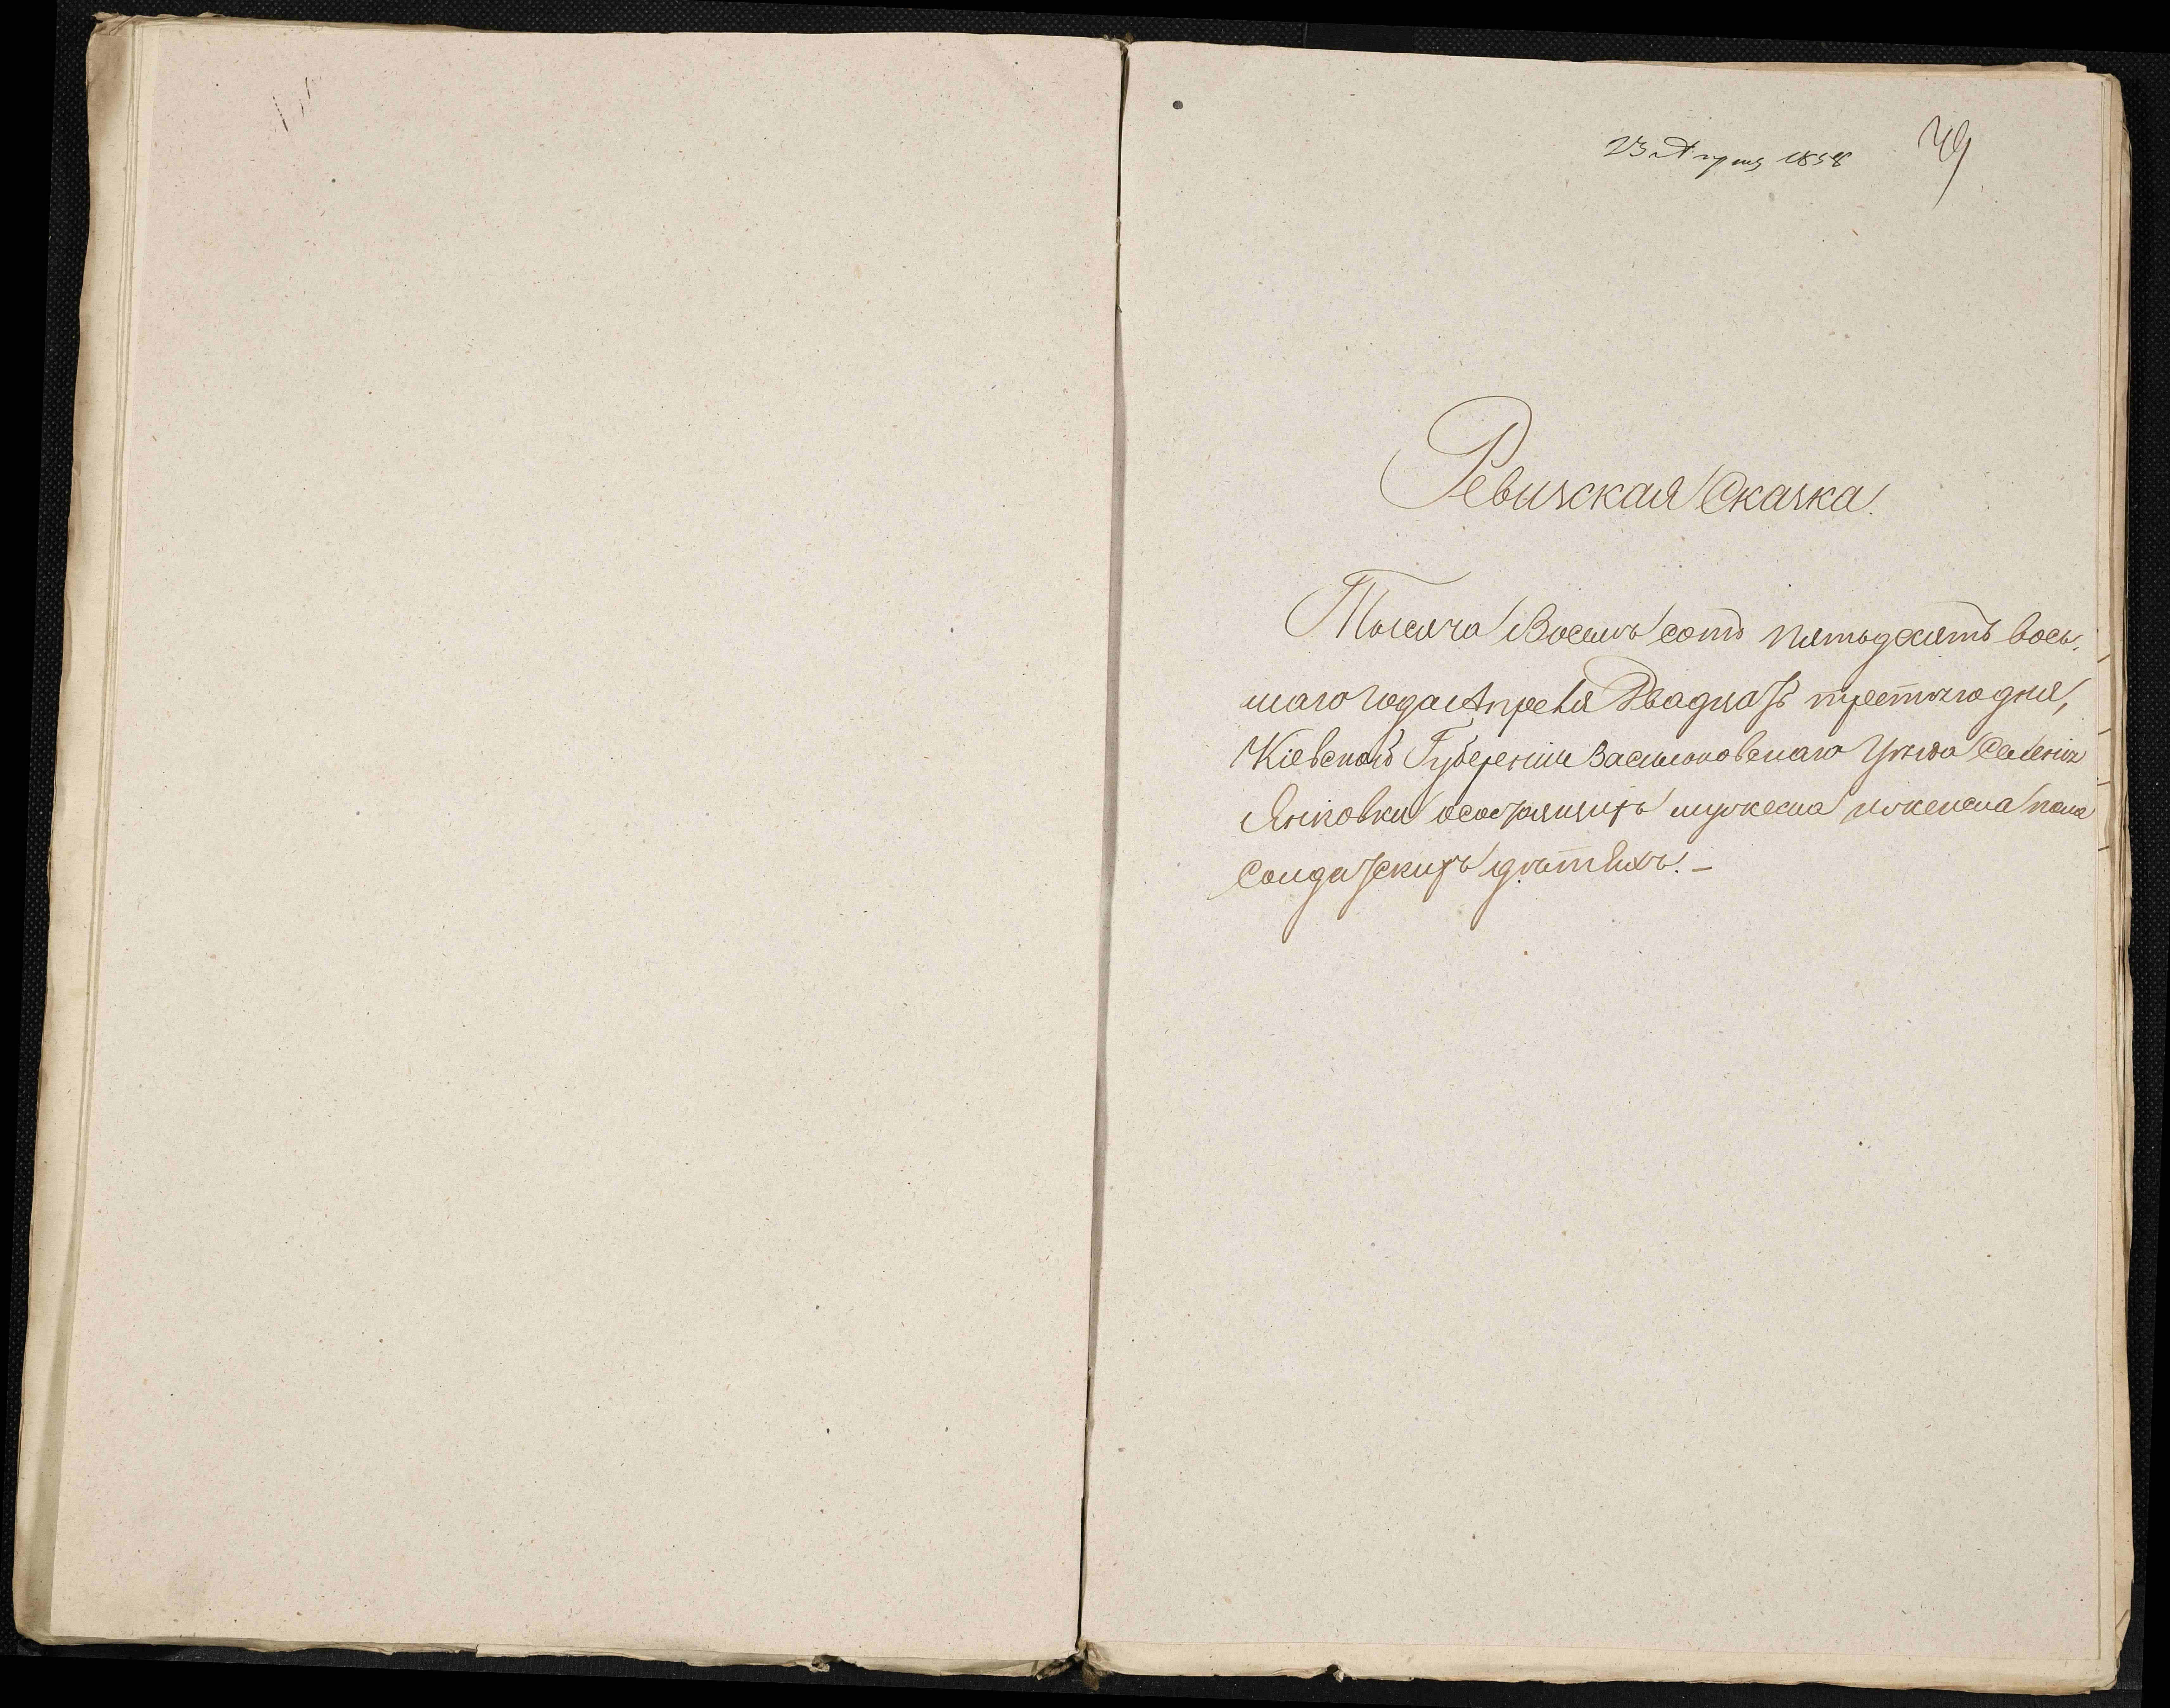 23 Апреля 1858
Ревизская Сказка.
Тысяча Восемь сотъ пятьдесятъ вось-
маго года Апреля Двадцать третьяго дня,
Кіевской Губерніи Васильковскаго Уѣзда Селенія
Янковки о состоящихъ мужеска и женска пола
Солдатскихъ дѣтяхъ. –